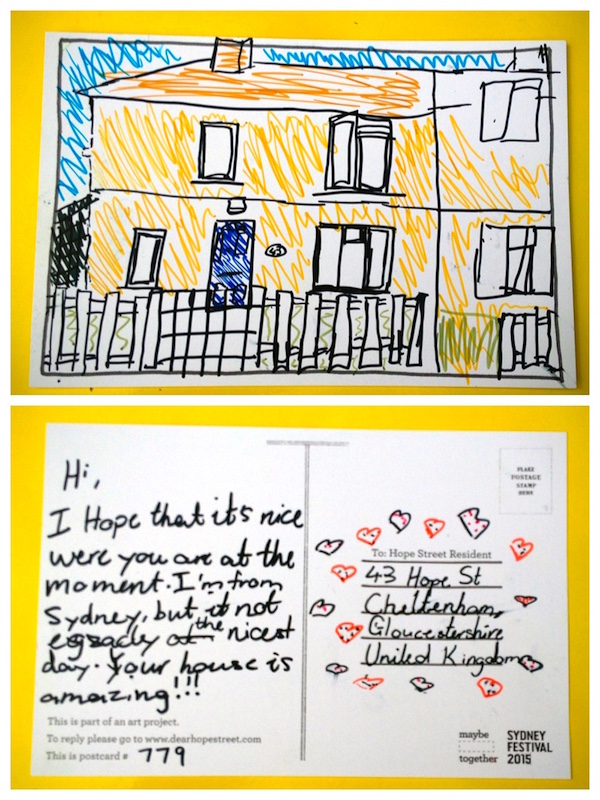 43
Hi,
I Hope that it's nice
were you are at the
moment. I'm from
Sydney, but it not
egsacly at the nicest
day. Your house is
amazing!!!
This is part of an art project.
To reply please go to www.dearhopestreet.com
This is postcard # 779
PLACE
POSTAGE
STAMP
HERE
To: Hope Street Resident
43 Hope St
Cheltenham,
Gloucestershire
United Kingdom
maybe
together
SYDNEY
FESTIVAL
2015